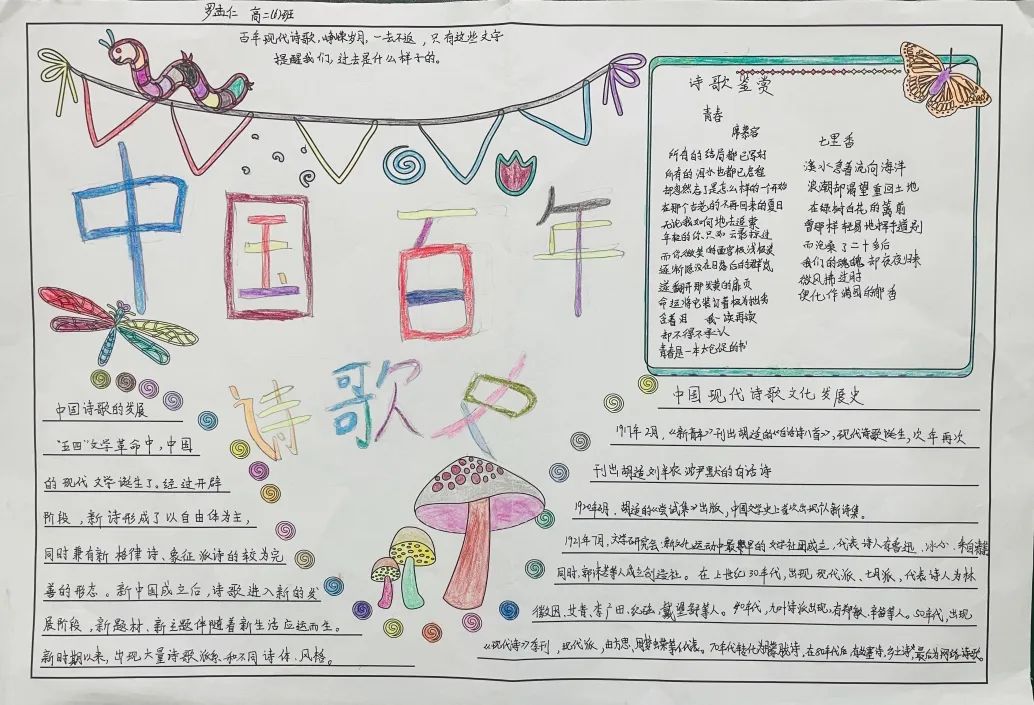 罗孟仁 高二(6)班
百年现代诗歌,峥嵘岁月,一去不返,只有这些文字
提醒我们,过去是什么样子的。
中国百年
诗歌史
诗歌鉴赏
青春
席慕容
所有的结局都已写好
所有的泪水也都已启程
却忽然忘了是怎么样的一个开始
在那个古老的不再回来的夏日
无论我如何地去追索
年轻的你只如云影掠过
而你微笑的面容极浅极淡
逐渐隐没在日落后的群岚
遂翻开那发黄的扉页
命运将它装订得极为拙劣
含着泪 我一读再读
却不得不承认
青春是一本太仓促的书
七里香
溪水急着流向海洋
浪潮却渴望重回土地
在绿树白花的篱前
曾那样轻易地挥手道别
而沧桑了二十多后
我们的魂魄却夜夜归来
微风拂过时
便化作满园的郁香
中国诗歌的发展
"五四"文学革命中,中国
的现代文学诞生了。经过开辟
阶段,新诗形成了以自由体为主,
同时兼有新格律诗、象征派诗的较为完
善的形态。新中国成立后,诗歌进入新的发
展阶段,新题材、新主题伴随着新生活应运而生。
新时期以来,出现大量诗歌派系和不同诗体、风格。
中国现代诗歌文化发展史
1917年2月,《新青年》刊出胡适的《白话诗八首》,现代诗歌诞生,次年再次
刊出胡适 刘半农 沈尹默的白话诗
1920年3月,胡适的《尝试集》出版,中国文学史上首次出现个人新诗集。
1921年7月,文学研究会:新文化运动中最早的文学社团成立,代表诗人有鲁迅、冰心、朱自清
同时,郭沫若等人成立创造社。在上世纪30年代,出现现代派、七月派,代表诗人为林
徽因、艾青、李广田、纪弦、戴望舒等人。40年代,九叶诗派出现,有郑敏、辛笛等人。50年代,出现
《现代诗》季刊,现代派,由方思、周梦蝶等人代表。70年代转化为朦胧诗,在80年代后有故事诗,乡土诗,最后为网络诗歌。